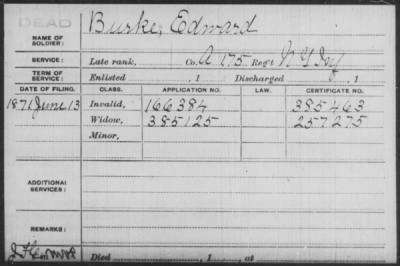 DEAD
Burke, Edward
NAME OF SOLDIER:
SERVICE: Late rank, Co. A 175 Reg't N Y Inf
TERM OF SERVICE: Enlisted , 1 Discharged , 1
DATE OF FILING. CLASS. APPLICATION NO. LAW. CERTIFICATE NO.
1871 June 13 Invalid, 166384 385463
Widow, 385125 257275
Minor,
ADDITIONAL SERVICES:
REMARKS:
Died , 1 , at